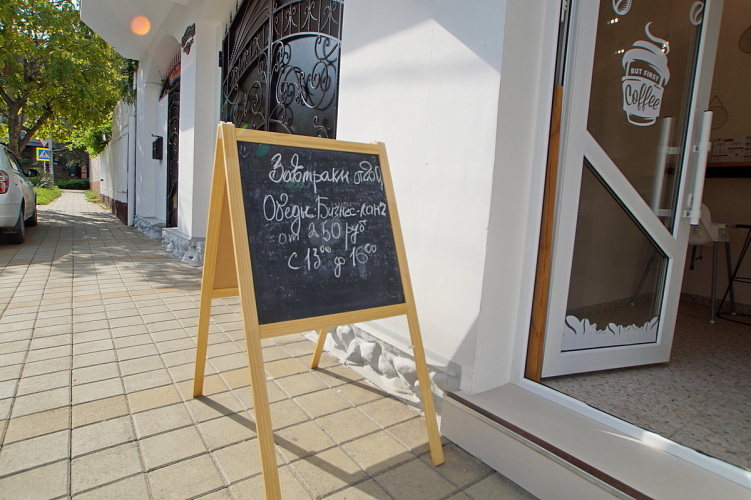 Завтраки от 250р
Обеды: Бизнес-ланч
от 250 руб
с 13⁰⁰ до 16⁰⁰
BUT FIRST
Coffee